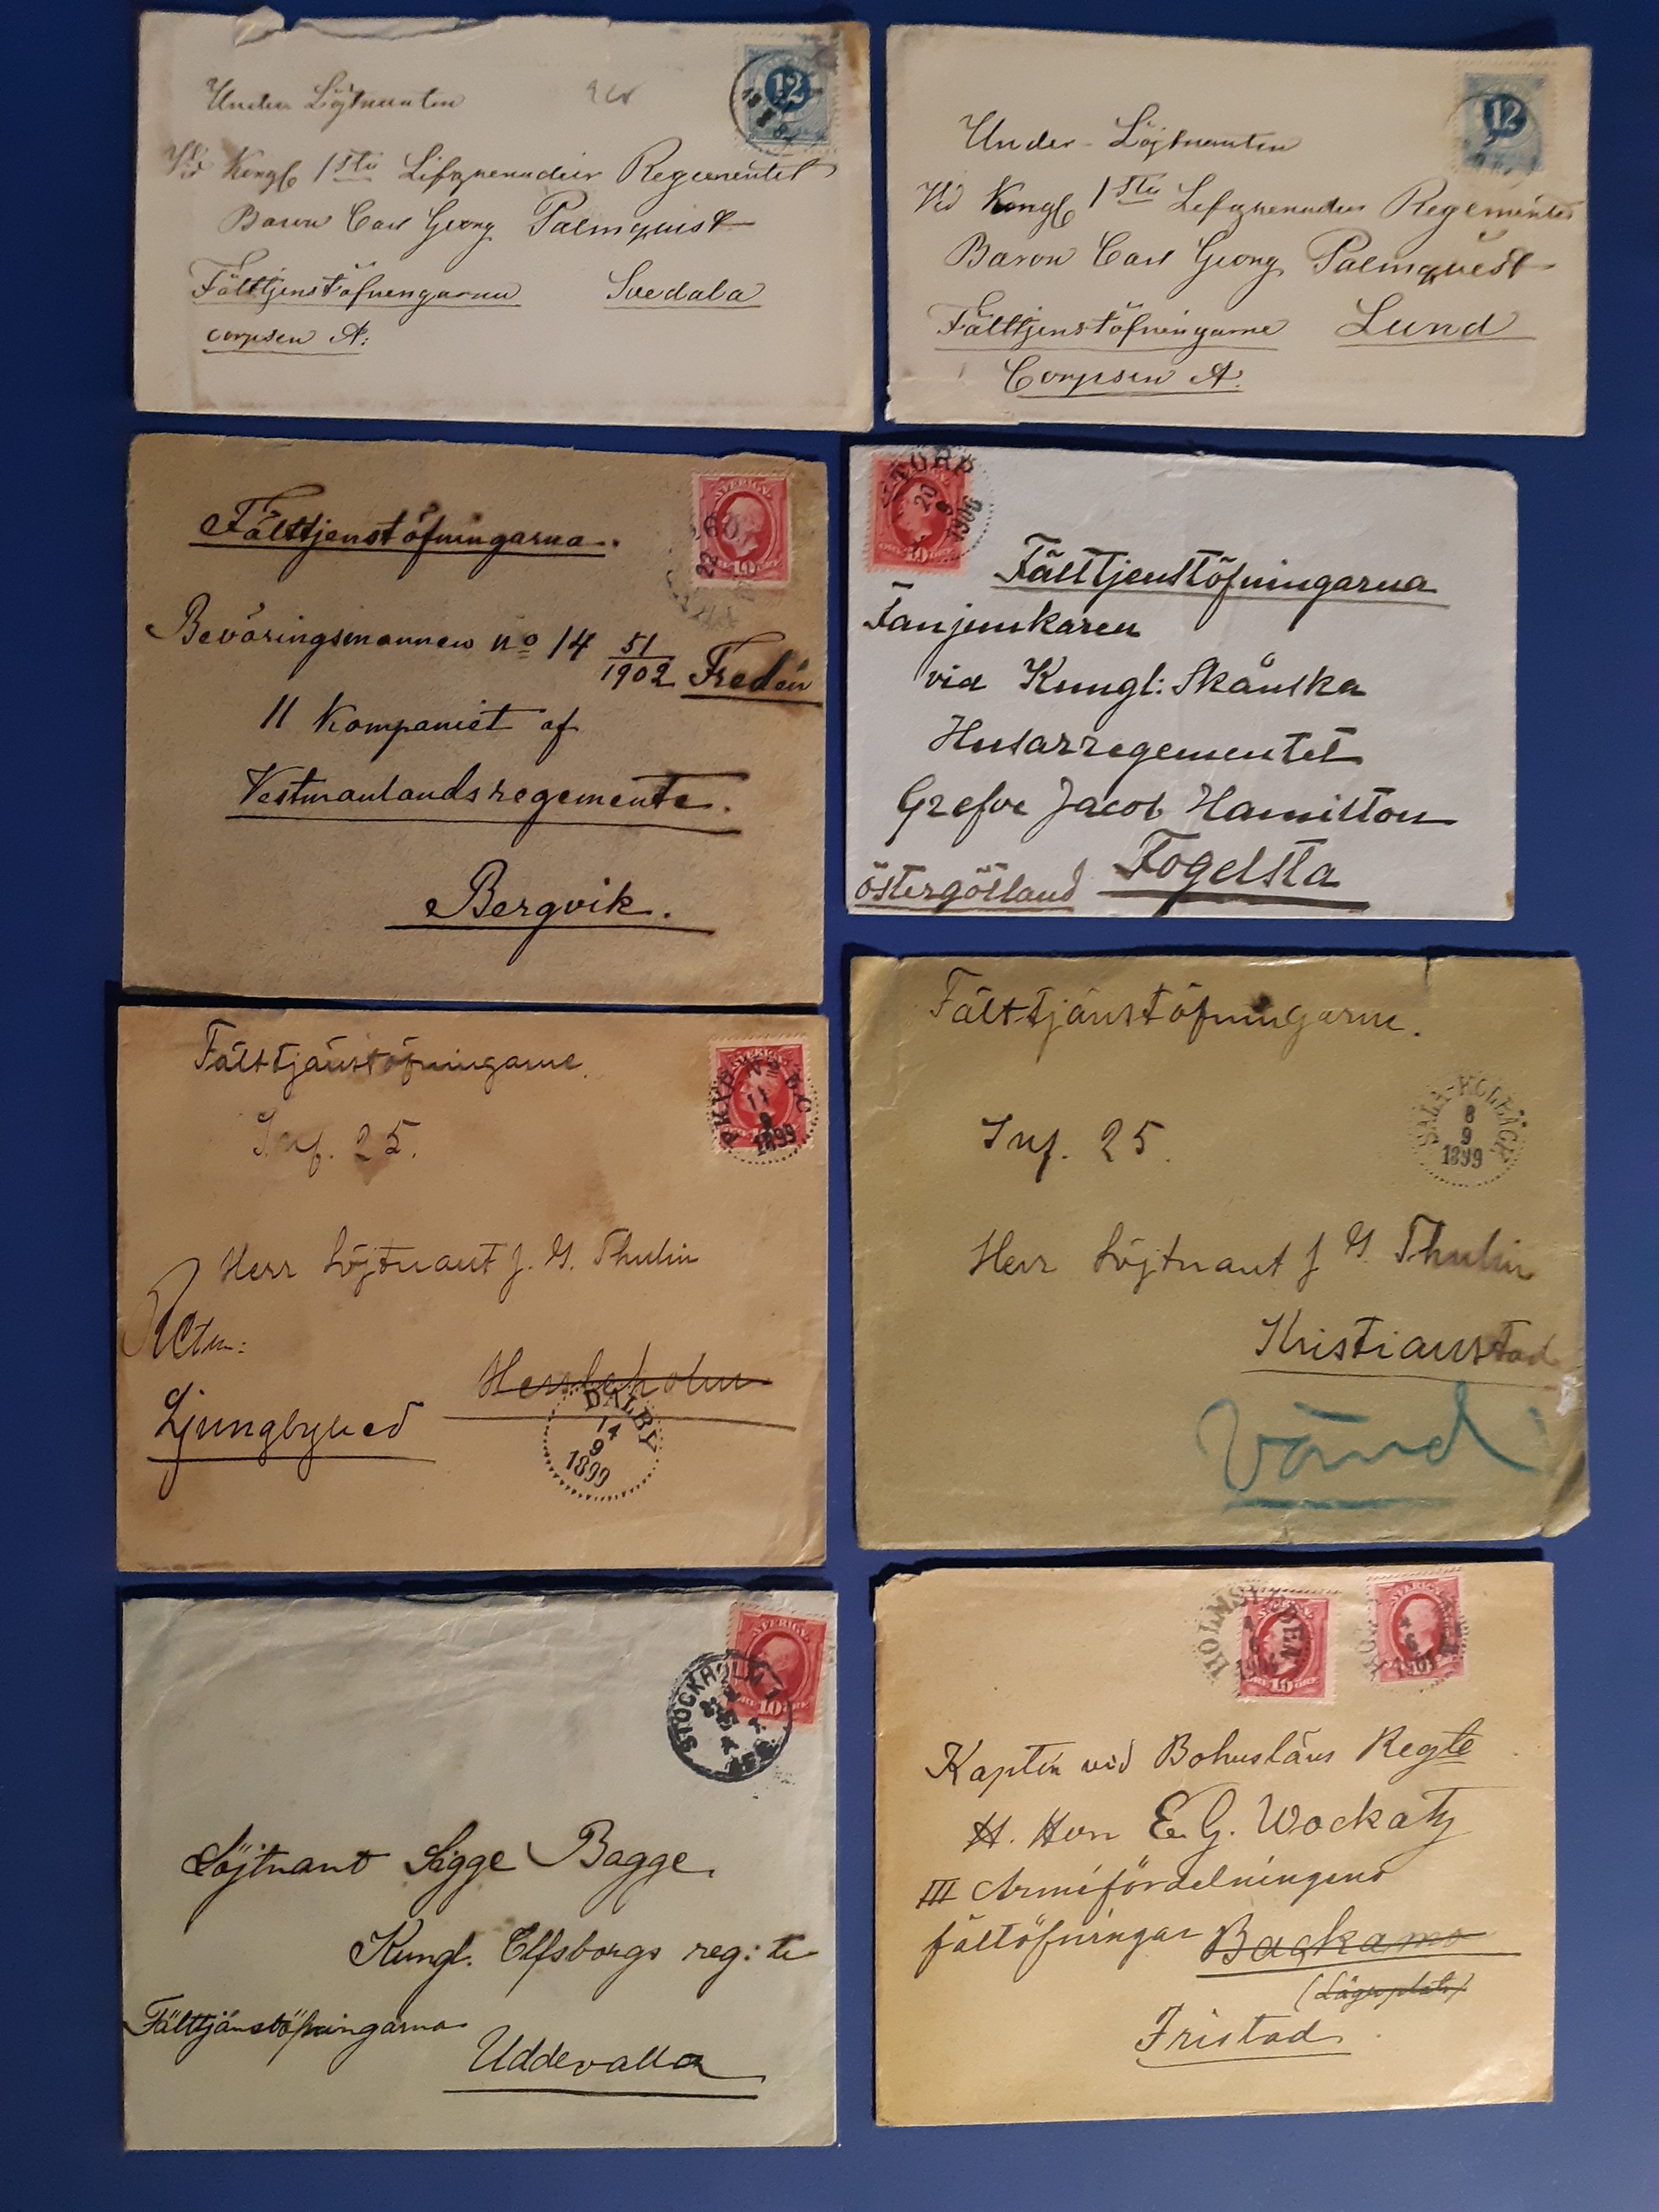 Under Löjtnanten
Vid Kongl 1sta Lifgrenadier Regementet
Baron Carl Georg Palmquist
Fälttjenstöfningarna Svedala
corpsen A:
12
Under-Löjtnanten
Vid Kongl 1sta Lifgrenadier Regementet
Baron Carl Georg Palmquist
Fälttjenstöfningarne Lund
Corpsen A.
12
SVERIGE
10
Fälttjenstöfningarna.
Beväringsmannen no 14 51/1902 Fredén
11 Kompaniet af
Vestmanlandsregemente.
Bergvik.
20
9
1906
10
Fälttjenstöfningarna
Fanjunkaren
vid Kungl: Skånska
Husarregementet
Grefve Jacob Hamilton
Fogelsta
Östergötland
Fälttjänstöfningarne.
SVERIGE
11
9
1899
Inf. 25.
Herr Löjtnant J. G. Thulin
Retur:
Herrleholm
Ljungbyhed
DALBY
14
9
1899
Fälttjänstöfningarne.
Inf. 25.
8
9
1899
Herr Löjtnant J G Thulin
Kristianstad
Vänd
SVERIGE
10
STOCKHOLM 1
Löjtnant Sigge Bagge.
Kungl. Elfsborgs reg:te
Fälttjänstöfningarna
Uddevalla
SVERIGE
10
SVERIGE
Kapten vid Bohusläns Regte
H. Herr E. G. Wockatz
III Arméfördelningens
fältöfningar Backamo
(Lägerplats)
Fristad